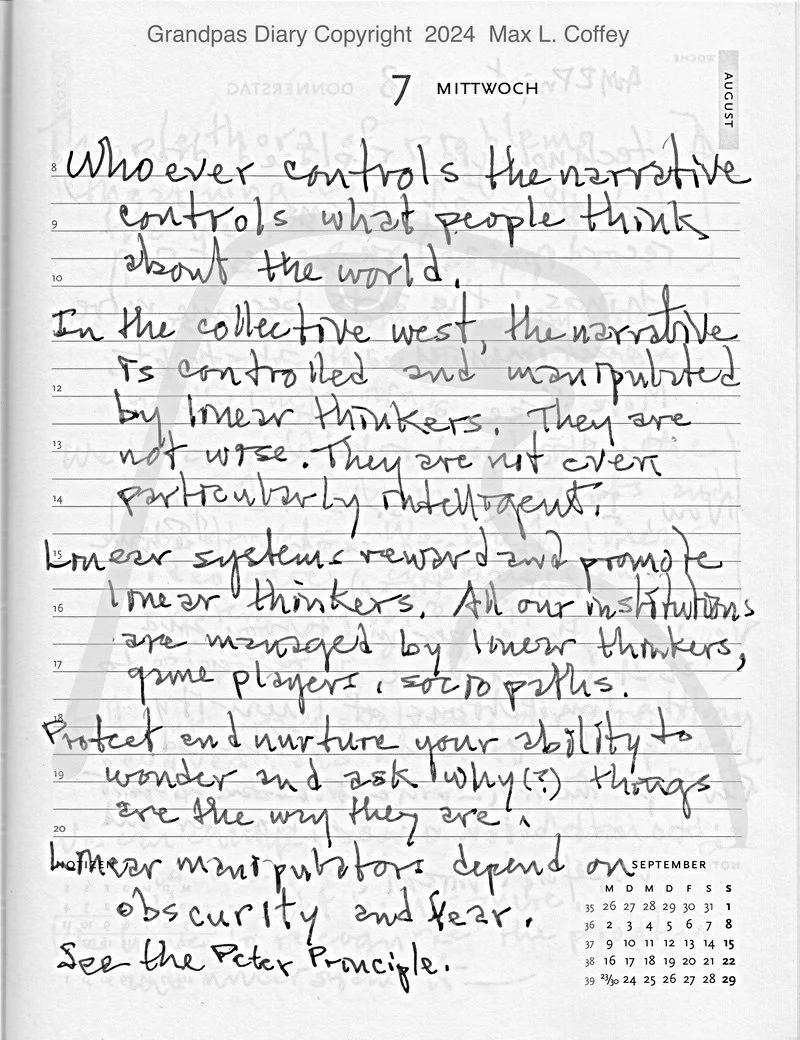 Grandpas Diary Copyright 2024 Max L. Coffey
7 MITTWOCH
AUGUST
8 Whoever controls the narrative
9 controls what people think
10 about the world.
In the collective west, the narrative
is controlled and manipulated
12 by linear thinkers. They are
13 not wise. They are not even
14 particularly intelligent.
15 Linear systems reward and promote
16 linear thinkers. All our institutions
are managed by linear thinkers,
17 game players, sociopaths.
18 Protect and nurture your ability to
19 wonder and ask why(?) things
are the way they are.
20
NOTIZEN Linear manipulators depend on SEPTEMBER
obscurity and fear.
See the Peter Principle.
M D M D F S S
35 26 27 28 29 30 31 1
36 2 3 4 5 6 7 8
37 9 10 11 12 13 14 15
38 16 17 18 19 20 21 22
39 23/30 24 25 26 27 28 29